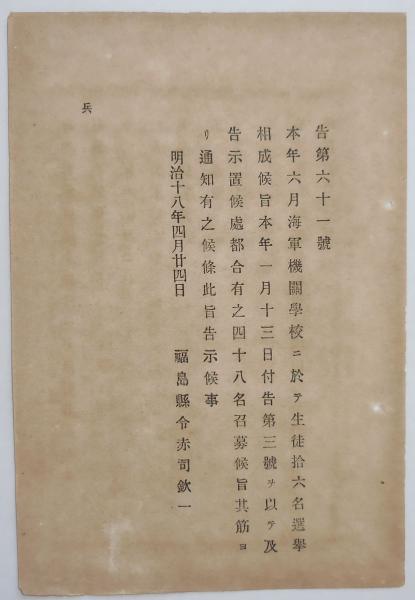 告第六十一號
本年六月海軍機關學校ニ於テ生徒拾六名選擧
相成候旨本年一月十三日付告第三號ヲ以テ及
告示置候處都合有之四十八名召募候旨其筋ヨ
リ通知有之候條此旨告示候事
明治十八年四月廿四日
福島縣令赤司欽一
兵